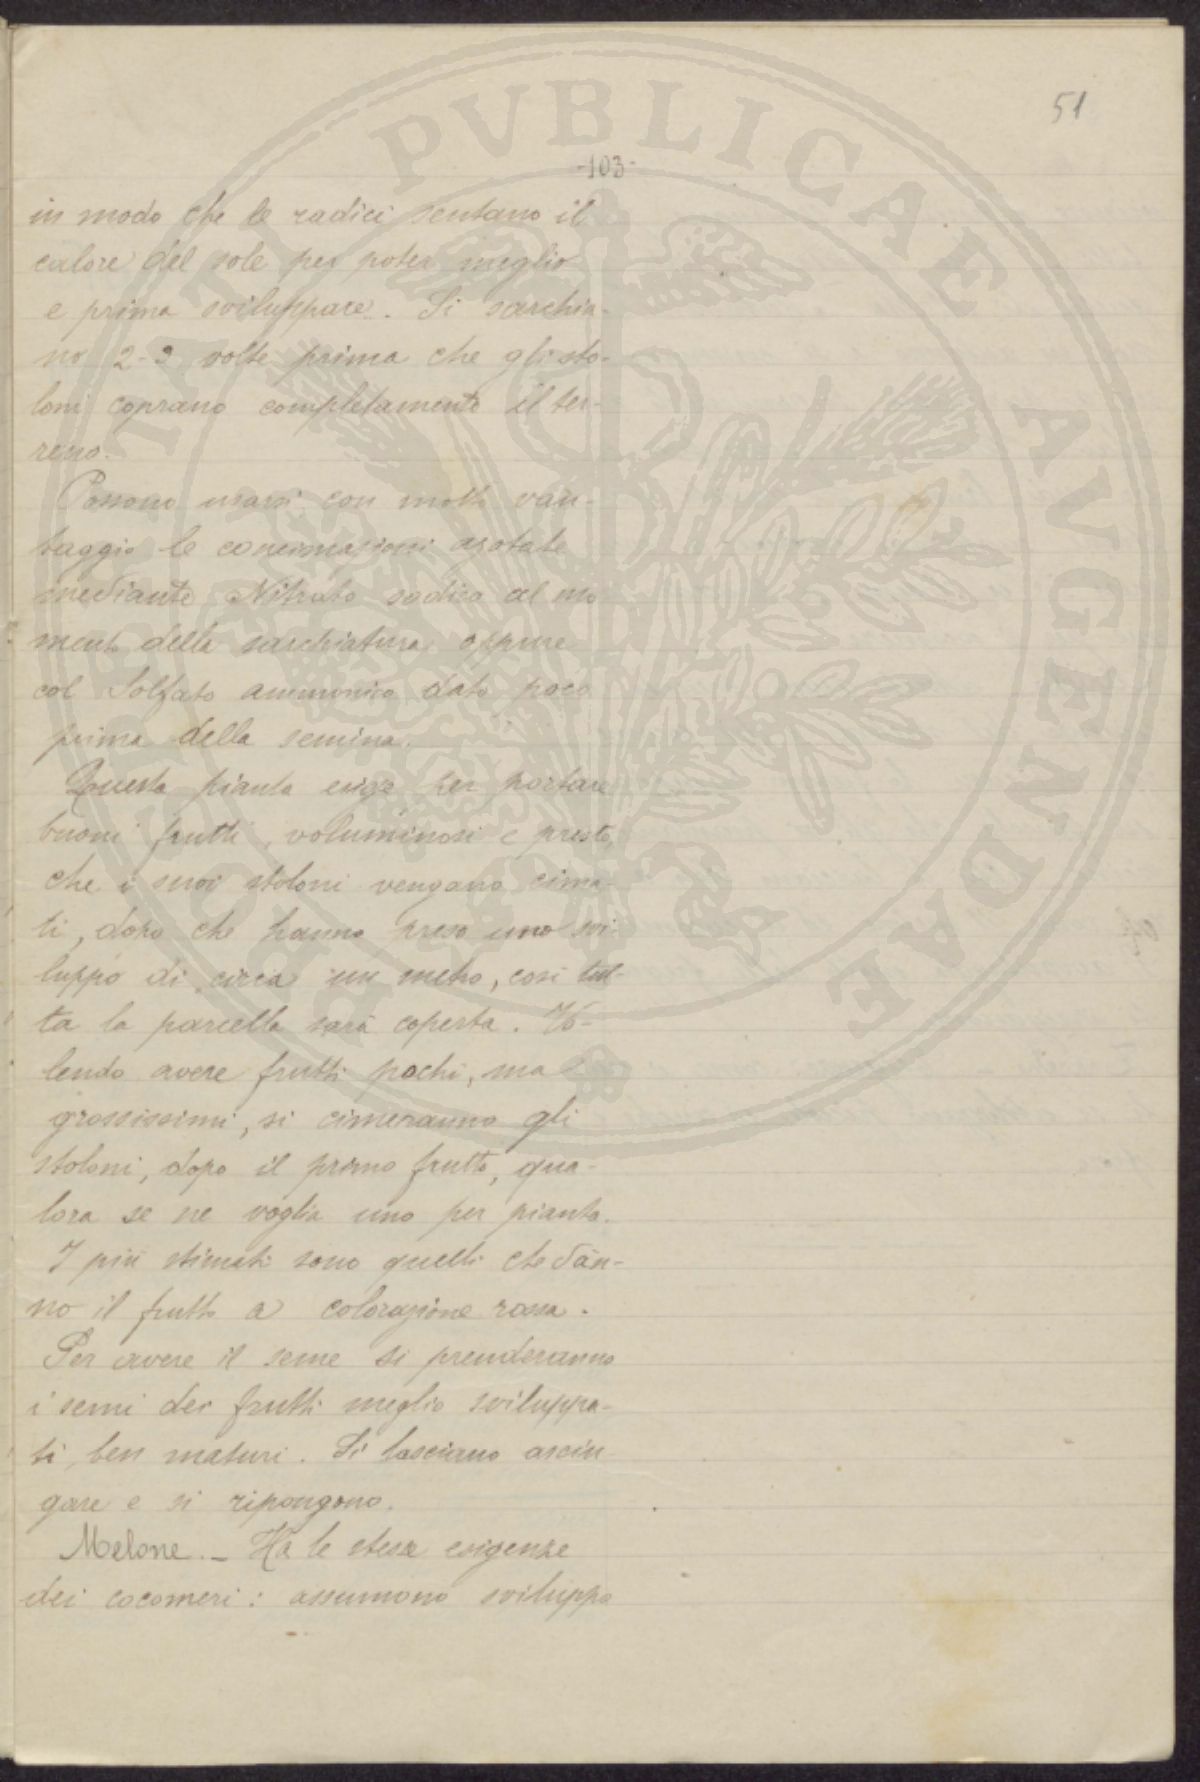 51
-103-
in modo che le radici sentano il
calore del sole per poter meglio
e prima sviluppare. Si sarchia-
no 2-3 volte prima che gli sto-
loni coprano completamente il ter-
reno.
Possono usarsi con molto van-
taggio le concimazioni azotate
mediante Nitrato sodico al mo
mento della sarchiatura oppure
col Solfato ammonico dato poco
prima della semina.
Questa pianta esige per portare
buoni frutti, voluminosi e presto,
che i suoi stoloni vengano cima-
ti, dopo che hanno preso uno svi-
luppo di circa un metro, così tut-
ta la parcella sarà coperta. Vo-
lendo avere frutti pochi, ma
grossissimi, si cimeranno gli
stoloni, dopo il primo frutto, qua-
lora se ne voglia uno per pianta.
I più stimati sono quelli che dàn-
no il frutto a colorazione rossa.
Per avere il seme si prenderanno
i semi dei frutti meglio sviluppa-
ti, ben maturi. Si lasciano asciu
gare e si ripongono.
Melone. - Ha le stesse esigenze
dei cocomeri: assumono sviluppo
PROSPERITATI PVBLICAE AVGENDAE